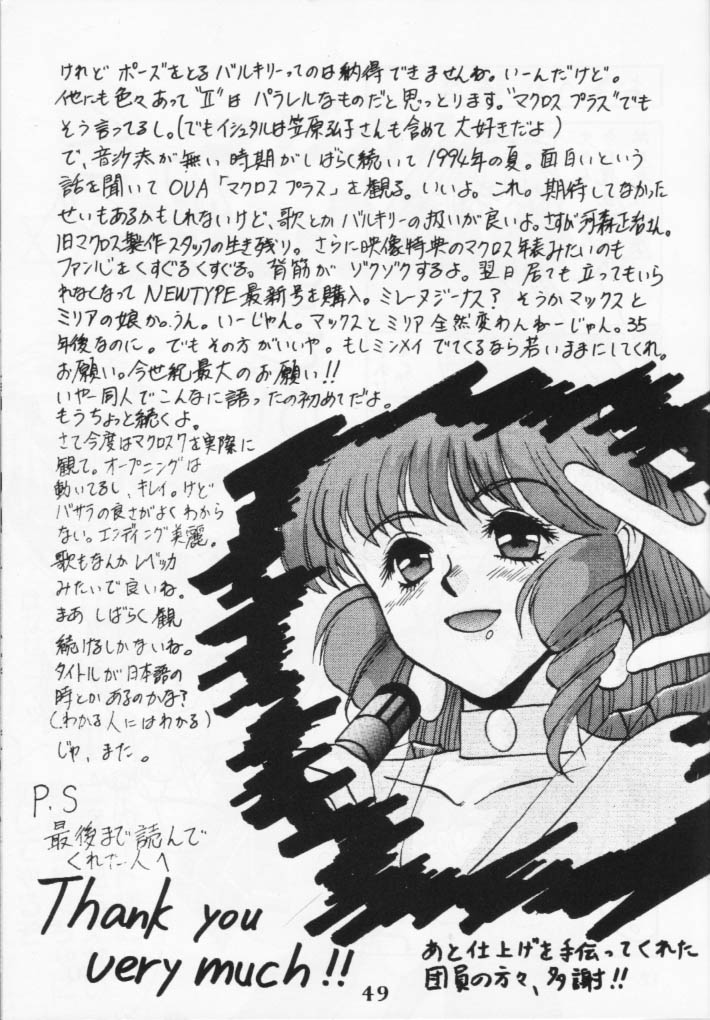 けれど ポーズをとる バルキリーってのは納得できませんね。いーんだけど。
他にも色々あって"Ⅱ"は パラレルなものだと思っとります。"マクロス プラス"でも
そう言ってるし。(でもイシュタルは笠原弘子さんも含めて 大好きだよ)
で、音沙汰が無い 時期がしばらく続いて 1994年の夏。面白いという
話を聞いて OVA「マクロス プラス」を観る。いいよ。これ。期待してなかった
せいもあるかもしれないけど、歌とか バルキリーの扱いが良いよ。さすが河森正治さん。
旧マクロス製作スタッフの生き残り。さらに映像特典のマクロス年表みたいのも
ファン心をくすぐるくすぐる。背筋が ゾクゾクするよ。翌日 居ても立ってもいら
れなくなって NEWTYPE最新号を購入。ミレーヌジーナス? そうかマックスと
ミリアの娘か。うん。いーじゃん。マックスとミリア全然変わんねーじゃん。35
年後なのに。でもその方がいいや。もしミンメイ でてくるなら若いままにしてくれ。
お願い。今世紀最大のお願い!!
いやー同人でこんなに語ったの初めてだよ。
もうちょっと続くよ。
さて今度はマクロス7を実際に
観て。オープニングは
動いてるし、キレイ。けど
バサラの良さがよくわから
ない。エンディング美麗。
歌もなんかレベッカ
みたいで良いね。
まあ しばらく観
続けるしかないね。
タイトルが日本語の
時とかあるのかな?
(わかる人にはわかる)
じゃ、また。
P.S
最後まで読んで
くれた人へ
Thank you
very much!!
あと仕上げを手伝ってくれた
団員の方々、多謝!!
49